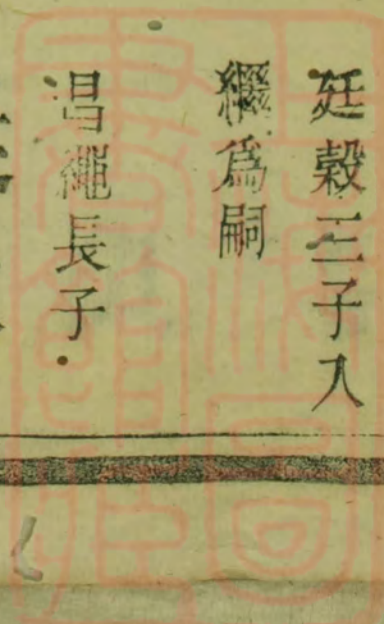 廷穀三子入
繼爲嗣
昌繩長子